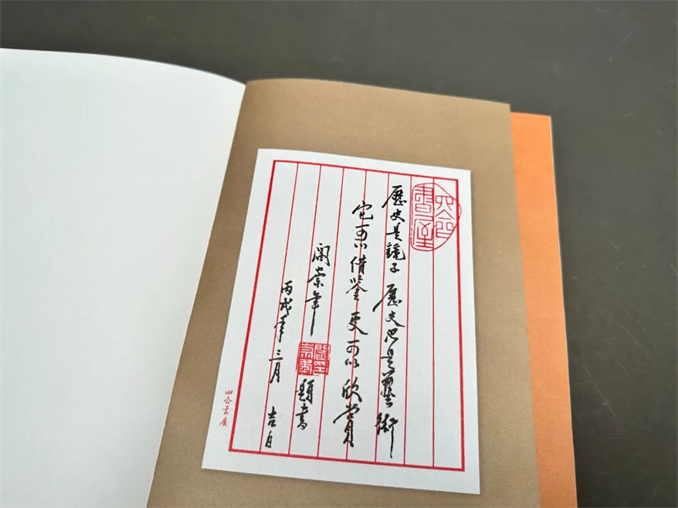 四合書屋
歷史是鏡子 歷史也是藝術
它可以借鑒 更可以欣賞
閻崇年 題書
丙戌年三月 吉日
四合書屋